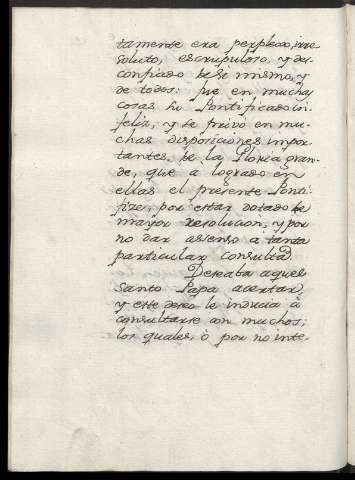 tamente era perplexo, irre
soluto, escrupuloso, y des
confiado de se mismo, y
de todos: fue en muchas
cosas su Pontificado in
feliz, y se privó en mu-
chas disposiciones impor
tantes, de la Gloria gran-
de, que a logrado en
ellas el presente Ponti-
fize, por estar dotado de
mayor resolucion, y por
no dar assenso a tanta
particular consulta.
Deseaba aquel
santo Papa acertar,
y este deseo le inducia à
consultarse con muchos;
los quales, ò por no inte-